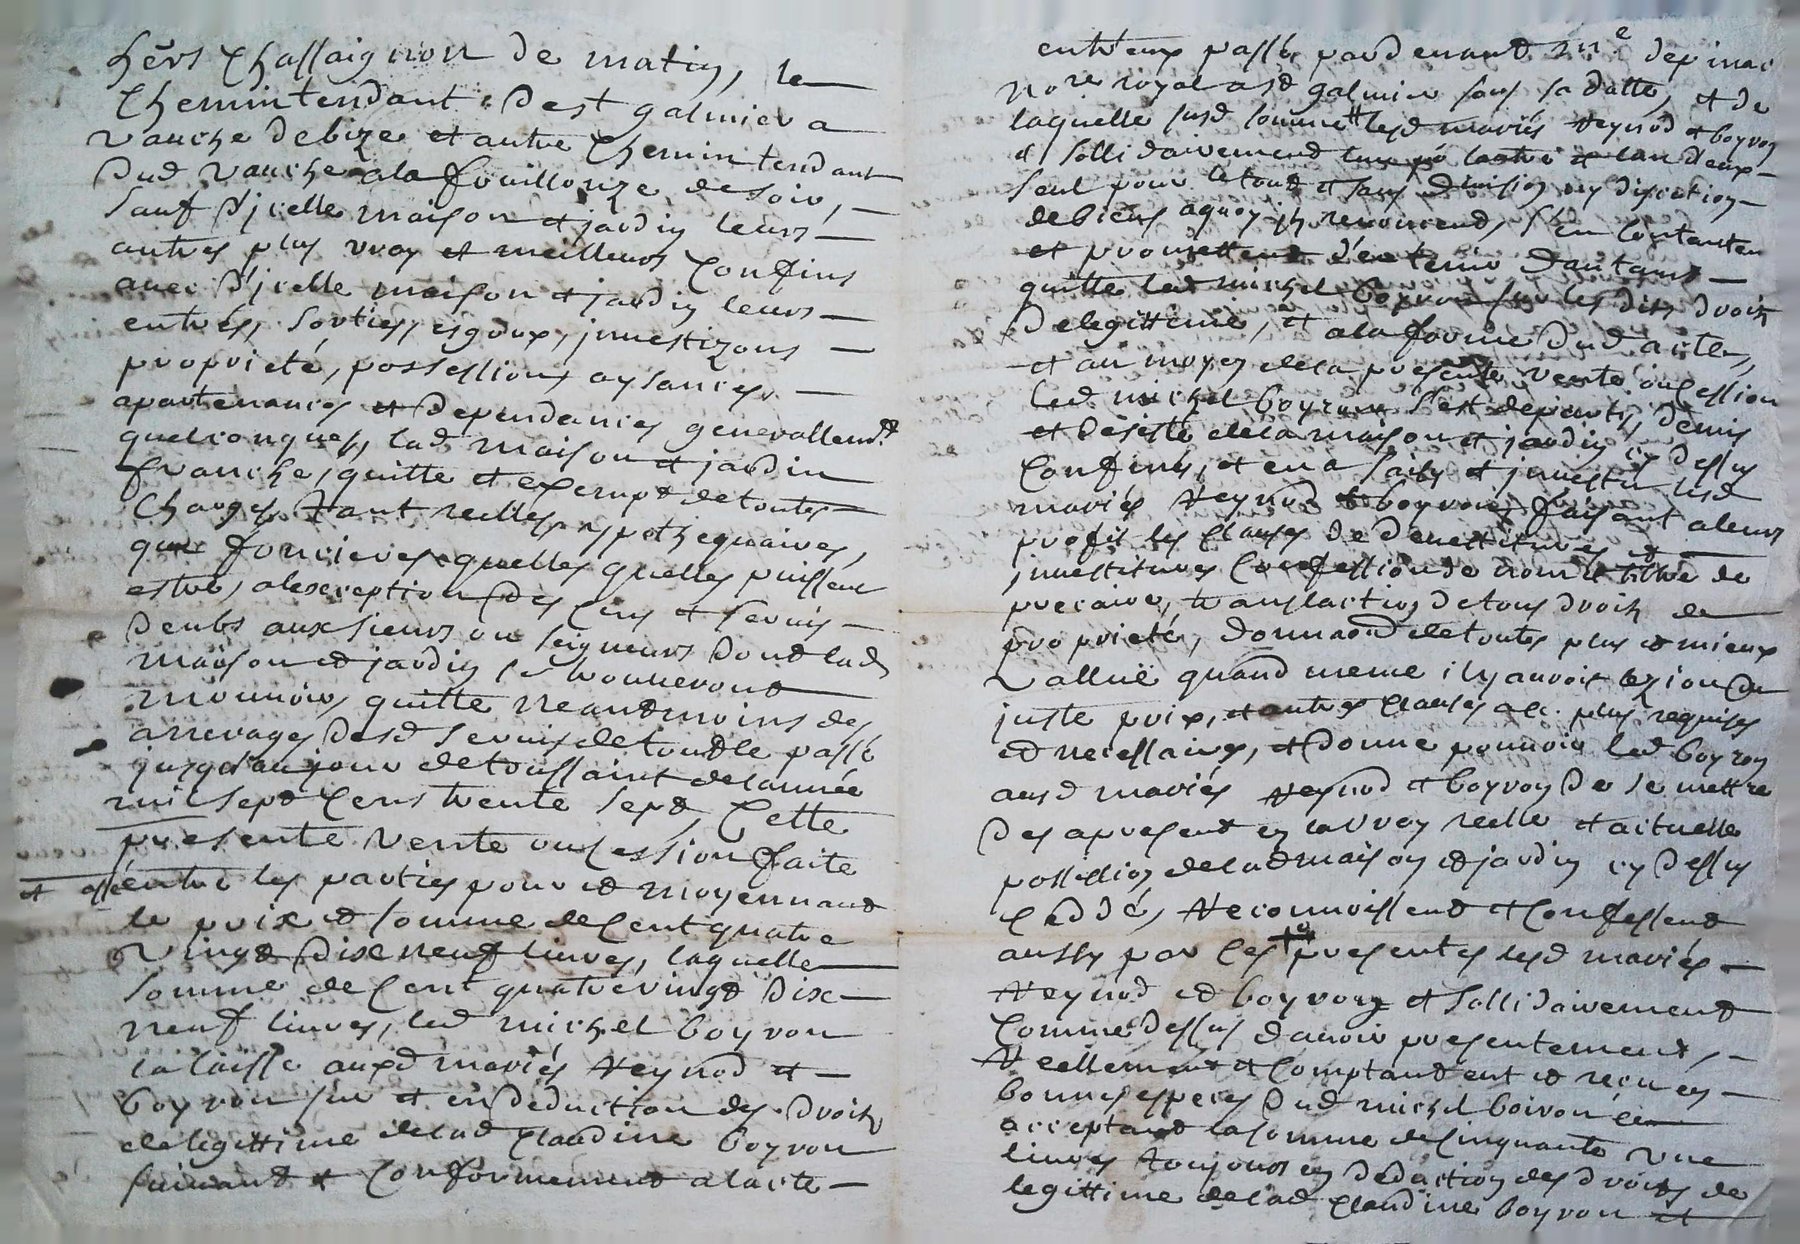 hers Chassaignon de matin, le
Chemin tendant de st galmier a
vauche de bize et autre Chemin tendant
dud vauche a la fouillouze de soir,
sauf d'jcelle maison et jardin leurs
autres plus vray et meilleurs Confins
avec d'jcelle maison et jardin leurs
entrées, sorties, esgoux, jnvestizons
proprieté, possessions aysances,
apartenances et dependances generallemt
quelconques, lad maison et jardin
franche, quitte et exempt de toutes
Charges tant reelles, ypothequaires,
que foncieres quelles quelles puissent
estre, a lexception des Cens et servis
deubs aux sieurs ou seigneurs dont lad
maison et jardin se trouveront
mouvoir, quitte neantmoins des
arrerages desd servis de tout le passé
jusqu'au jour de toussaint de lannée
mil sept Cens trente sept, Cette
presente vente ou Cession faite
et entre les parties pour et moyennant
le prix et somme de Cent quatre
vingt dixe neuf livres, laquelle
somme de Cent quatre vingt dixe
neuf livres, led michel boyron
la laisse auxd mariés Neynod et
boyron sur et en deduction des droits
de legittime de lad Claudine boyron
suivant et Conformement a lacte
entr'eux passé pardevant me depinac
nore royal a st galmier sous sa datte, et de
laquelle susd somme lesd mariés Neynod et boyron
et sollidairement lun pr lautre et lun d'eux
seul pour le tout et sans division ny discution
de biens a quoy ils renoncent, s'en Contentent
et promettent d'en tenir dautant
quitte led michel boyron sur lesdits droits
de legittime, et a la forme dud acte,
et au moyen de la presente vente ou Cession
led michel boyron s'est departi, demis
et désisté de la maison et jardin cy dessus
Confinés, et en a saisy et jnvestu lesd
mariés Neynod et boyron, faisant a leurs
profit les Clauses de devestitures et
jnvestitures Confession de nom et tiltre de
precaire, translaction de tous droits de
proprieté, donnaon de toutes plus et mieux
vallüe quand meme il y auroit lezion du
juste prix, et autres Clauses a ce plus requises
et necessaires, et donne pouvoir led boyron
ausd mariés Neynod et boyron de se mettre
des apresent en la vray reelle et actuelle
possession de lad maison et jardin cy dessus
Ceddé, Reconnoissent et Confessent
aussy par Ces presentes lesd mariés
Neynod et boyron et sollidairement
Comme dessus davoir presentement,
Reellement et Comptant eut et receu en
bonnes especes dud michel boiron
acceptant la somme de Cinquante une
livres toujours en deduction des droits de
legittime de lad Claudine boyron et